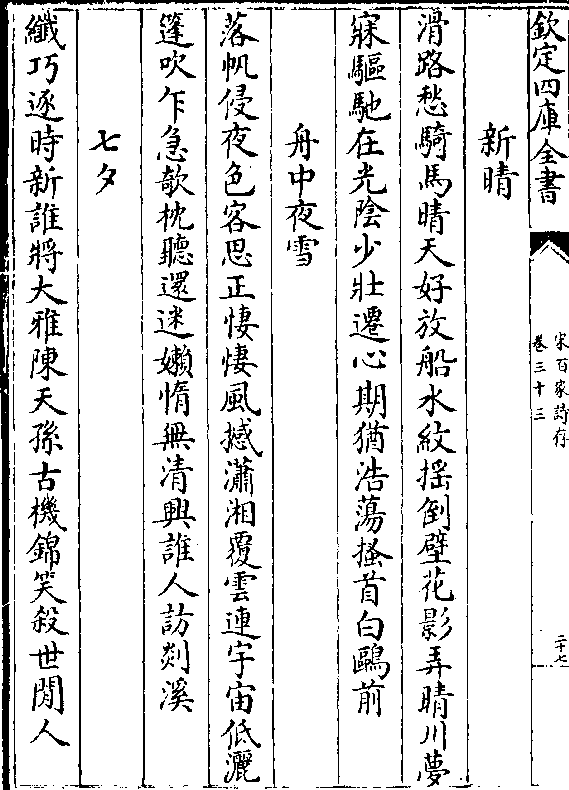 欽定四庫全書
宋百家詩存
卷三十三
二十七
新晴
滑路愁騎馬晴天好放船水紋揺倒壁花影弄晴川夢
寐驅馳在光陰少壯遷心期猶浩蕩搔首白鷗前
舟中夜雪
落帆侵夜色客思正悽悽風撼瀟湘覆雲連宇宙低灑
篷吹乍急欹枕聽還迷嬾惰無清興誰人訪剡溪
七夕
纎巧逐時新誰將大雅陳天孫古機錦笑殺世閒人